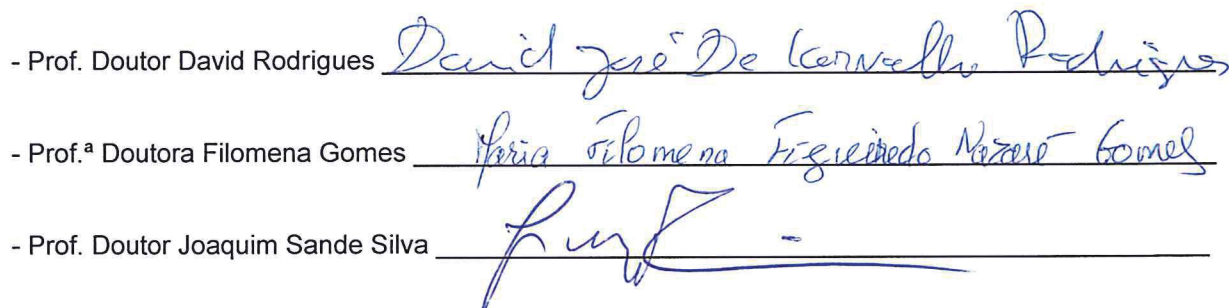 - Prof. Doutor David Rodrigues David José De Carvalho Rodrigues
- Prof.ª Doutora Filomena Gomes Maria Filomena Figueiredo Nazaré Gomes
- Prof. Doutor Joaquim Sande Silva